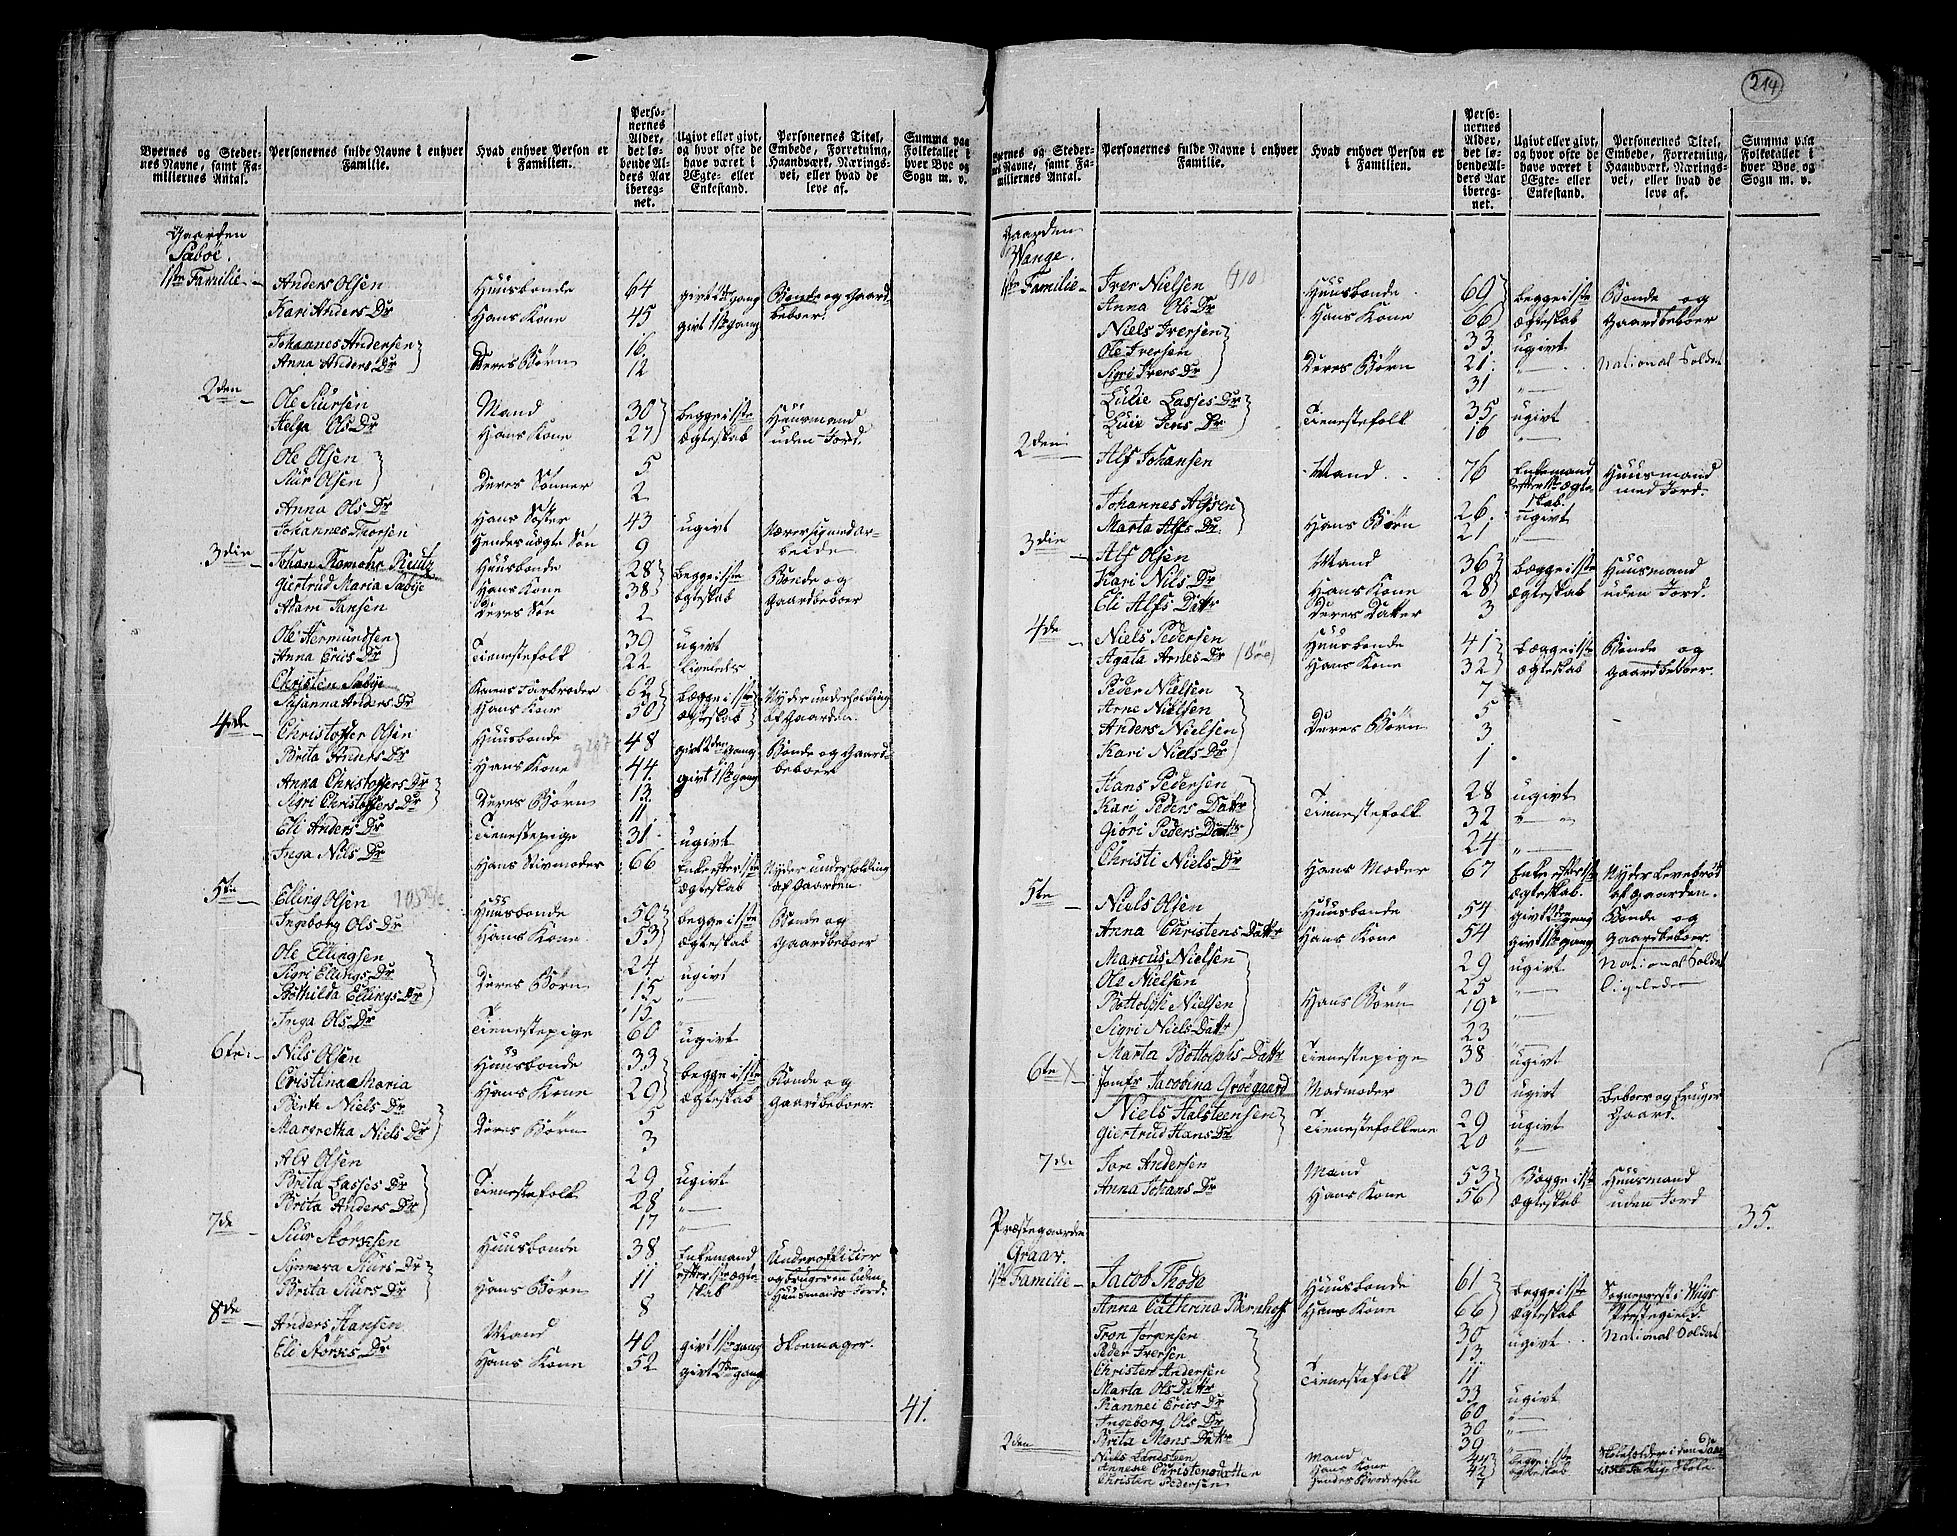 214
Byernes og Steder-
nes Navne, samt Fa-
miliernes Antal.
Personernes fulde Navne i enhver
Familie.
Hvad enhver Person er
i Familien.
Perso-
nernes
Alder,
det lø-
bende Al-
ders Aar
iberegn-
net.
Ugivt eller givt,
og hvor ofte de
have været i
Ægte- eller
Enkestand.
Personernes Titel,
Embede, Forretning,
Haandværk, Nærings-
vei, eller hvad de
leve af.
Summa paa
Folketallet i
hver Bye og
Sogn m. v.
Gaarden
Sæbøe.
1ste Familie - Anders Olsen Huusbonde 64 givt 2de gang Bonde og Gaard-
Kari Anders Dr Hans Kone 45 givt 1ste gang beboer.
Johannes Andersen 16
Anna Anders Dr Deres Børn 12
2den - Ole Siursen Mand 30 begge i 1ste Huusmand
Helga Ols Dr Hans Kone 27 ægteskab uden Jord.
Ole Olsen 5
Siur Olsen Deres Sønner 2
Anna Ols Dr Hans Søster 43 ugivt
Johannes Thorsen Hendes uægte Søn 9
3die - Johan Reutz Huusbonde 28 begge i 1ste Bonde og
Giertrud Maria Sæbye Hans Kone 38 ægteskab Gaardbeboer
Adam Jansen Deres Søn 2
Ole Hermundsen 39 ugivt
Anna Erics Dr Tienestefolk 22 ligeledes
Christen Sæbye Konens Farbroder 62 begge i 1ste Nyder underholding
Susanna Anders Dr Hans Kone 50 ægteskab af Gaarden.
4de - Christoffer Olsen Huusbonde 48 givt 2den gang Bonde og Gaard-
Brita Anders Dr Hans Kone 44 givt 1ste gang beboer
Anna Christoffers Dr 13
Sigri Christoffers Dr Deres Børn 11
Eli Anders Dr Tienestepige 31 ugivt
Inga Nils Dr Hans Stivmoder 66 Enke efter 1ste Nyder underholding
ægteskab af Gaarden
5te - Elling Olsen Huusbonde 50 begge i 1ste Bonde og
Ingeborg Ols Dr Hans Kone 53 ægteskab Gaardbeboer
Ole Ellingsen 24 ugivt
Sigri Ellings Dr Deres Børn 15
Bothilda Ellings Dr 12
Inga Ols Dr Tienestepige 60 ugivt
6te - Nils Olsen Huusbonde 33 begge i 1ste Bonde og
Cristina Maria Hans Kone 29 ægteskab Gaardbeboer.
Berte Niels Dr 5
Margretha Niels Dr Deres Børn 3
Alv Olsen 29 ugivt
Brita Lasses Dr Tienestefolk 28
Brita Anders Dr 17
7de - Siur Huusbonde 38 Enkemand Underofficier
Synneva Siurs Dr 11 efter 1ste ægte- og bruger en liden
Brita Siurs Dr Hans Børn 8 skab Huusmands Jord.
8de - Anders Hansen Mand 40 givt 1ste gang Skomager.
Eli Dr Hans Kone 52 givt 2den gang
41.
Byernes og Steder-
nes Navne, samt Fa-
miliernes Antal.
Personernes fulde Navne i enhver
Familie.
Hvad enhver Person er
i Familien.
Perso-
nernes
Alder,
det lø-
bende Al-
ders Aar
iberegn-
net.
Ugivt eller givt,
og hvor ofte de
have været i
Ægte- eller
Enkestand.
Personernes Titel,
Embede, Forretning,
Haandværk, Nærings-
vei, eller hvad de
leve af.
Summa paa
Folketallet i
hver Bye og
Sogn m. v.
Gaarden
Wange.
1ste Familie - Iver Nielsen Huusbonde 69 begge i 1ste Bonde og
Anna Ols Dr Hans Kone 66 ægteskab Gaardbeboer
Niels Iversen 33 ugivt
Ole Iversen Deres Børn 21 National Soldat
Sigri Ivers Dr 31
Lulie Lasses Dr Tienestefolk 35 ugivt
Jens Dr 16
2den Alf Johansen Mand 76 Enkemand Huusmand
efter 1ste ægte- med Jord.
skab.
Johannes Alfsen Hans Børn 26 ugivt
Marta Alfs Dr 21
3die - Alf Olsen Mand 36 begge i 1ste Huusmand
Kari Nils Dr Hans Kone 28 ægteskab uden Jord.
Eli Alfs Dattr Deres Datter 3
4de - Niels Pedersen Huusbonde 41 begge i 1ste Bonde og
Agata Arnes Dr Hans Kone 32 ægteskab Gaardbeboer.
Peder Nielsen 7
Arne Nielsen 5
Anders Nielsen Deres Børn 3
Kari Niels Dr 1
Hans Pedersen 28 ugivt
Kari Peders Dattr Tienestefolk 32
Giøri Peders Dattr 24
Christi Niels Dr Hans Moder 67 Enke efter 1ste Nyder Levebrød
ægteskab. af Gaarden.
5te - Niels Olsen Huusbonde 54 givt 2den gang Bonde og
Anna Christens Dattr Hans Kone 54 givt 1ste gang Gaardbeboer.
Marcus Nielsen 29 ugivt National Soldat
Ole Nielsen 25 Ligeledes
Bottolph Nielsen Hans Børn 19
Sigri Niels Dattr 23
Marta Bottolphs Dattr Tienestepige 38 ugivt
6te - Jomfr Jacobina Grøegaard Madmoder 30 ugivt Beboer og bruger
Niels Halsteensen 29 ugivt Gaard.
Giertrud Hans Dr Tienestefolkene 20
7de Jon Andersen Mand 53 Begge i 1ste Huusmand
Anna Johans Dr Hans Kone 56 ægteskab uden Jord
35.
Præstegaarden
Graar.
1ste Familie - Jacob Thode Huusbonde 61 begge i 1ste Sognepræst i Wigs
Anna Cathrina Bernhoft Hans Kone 66 ægteskab Præstegield.
Tron Jørgensen 30 ugivt National Soldat
Peder Iversen 13
Christen Andersen Tienestefolk 11
Marta Ols Dattr 33 ugivt
Rannei Erics Dr 60
Ingeborg Ols Dr 30
Brita Mons Dattr 39
2den Niels Landsteen Mand 44 begge i 1ste Skoleholder i den
Annene Christensdatter Hans Kone 42 ægteskab Skole
Christen Pedersen Hendes Brodersøn 7